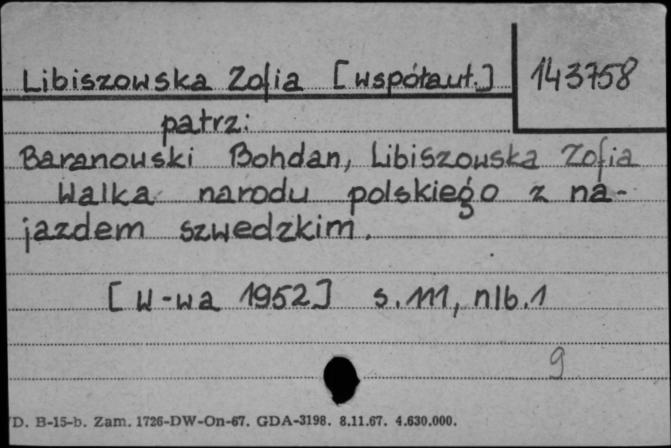 Libiszowska Zofia [współaut.] 143758
patrz:
Baranowski Bohdan, Libiszowska Zofia
Walka narodu polskiego z na-
jazdem szwedzkim.
[W-wa 1952] s. 111, nlb. 1
9
D. B-15-b. Zam. 1726-DW-On-67. GDA-3198. 8.11.67. 4.630.000.